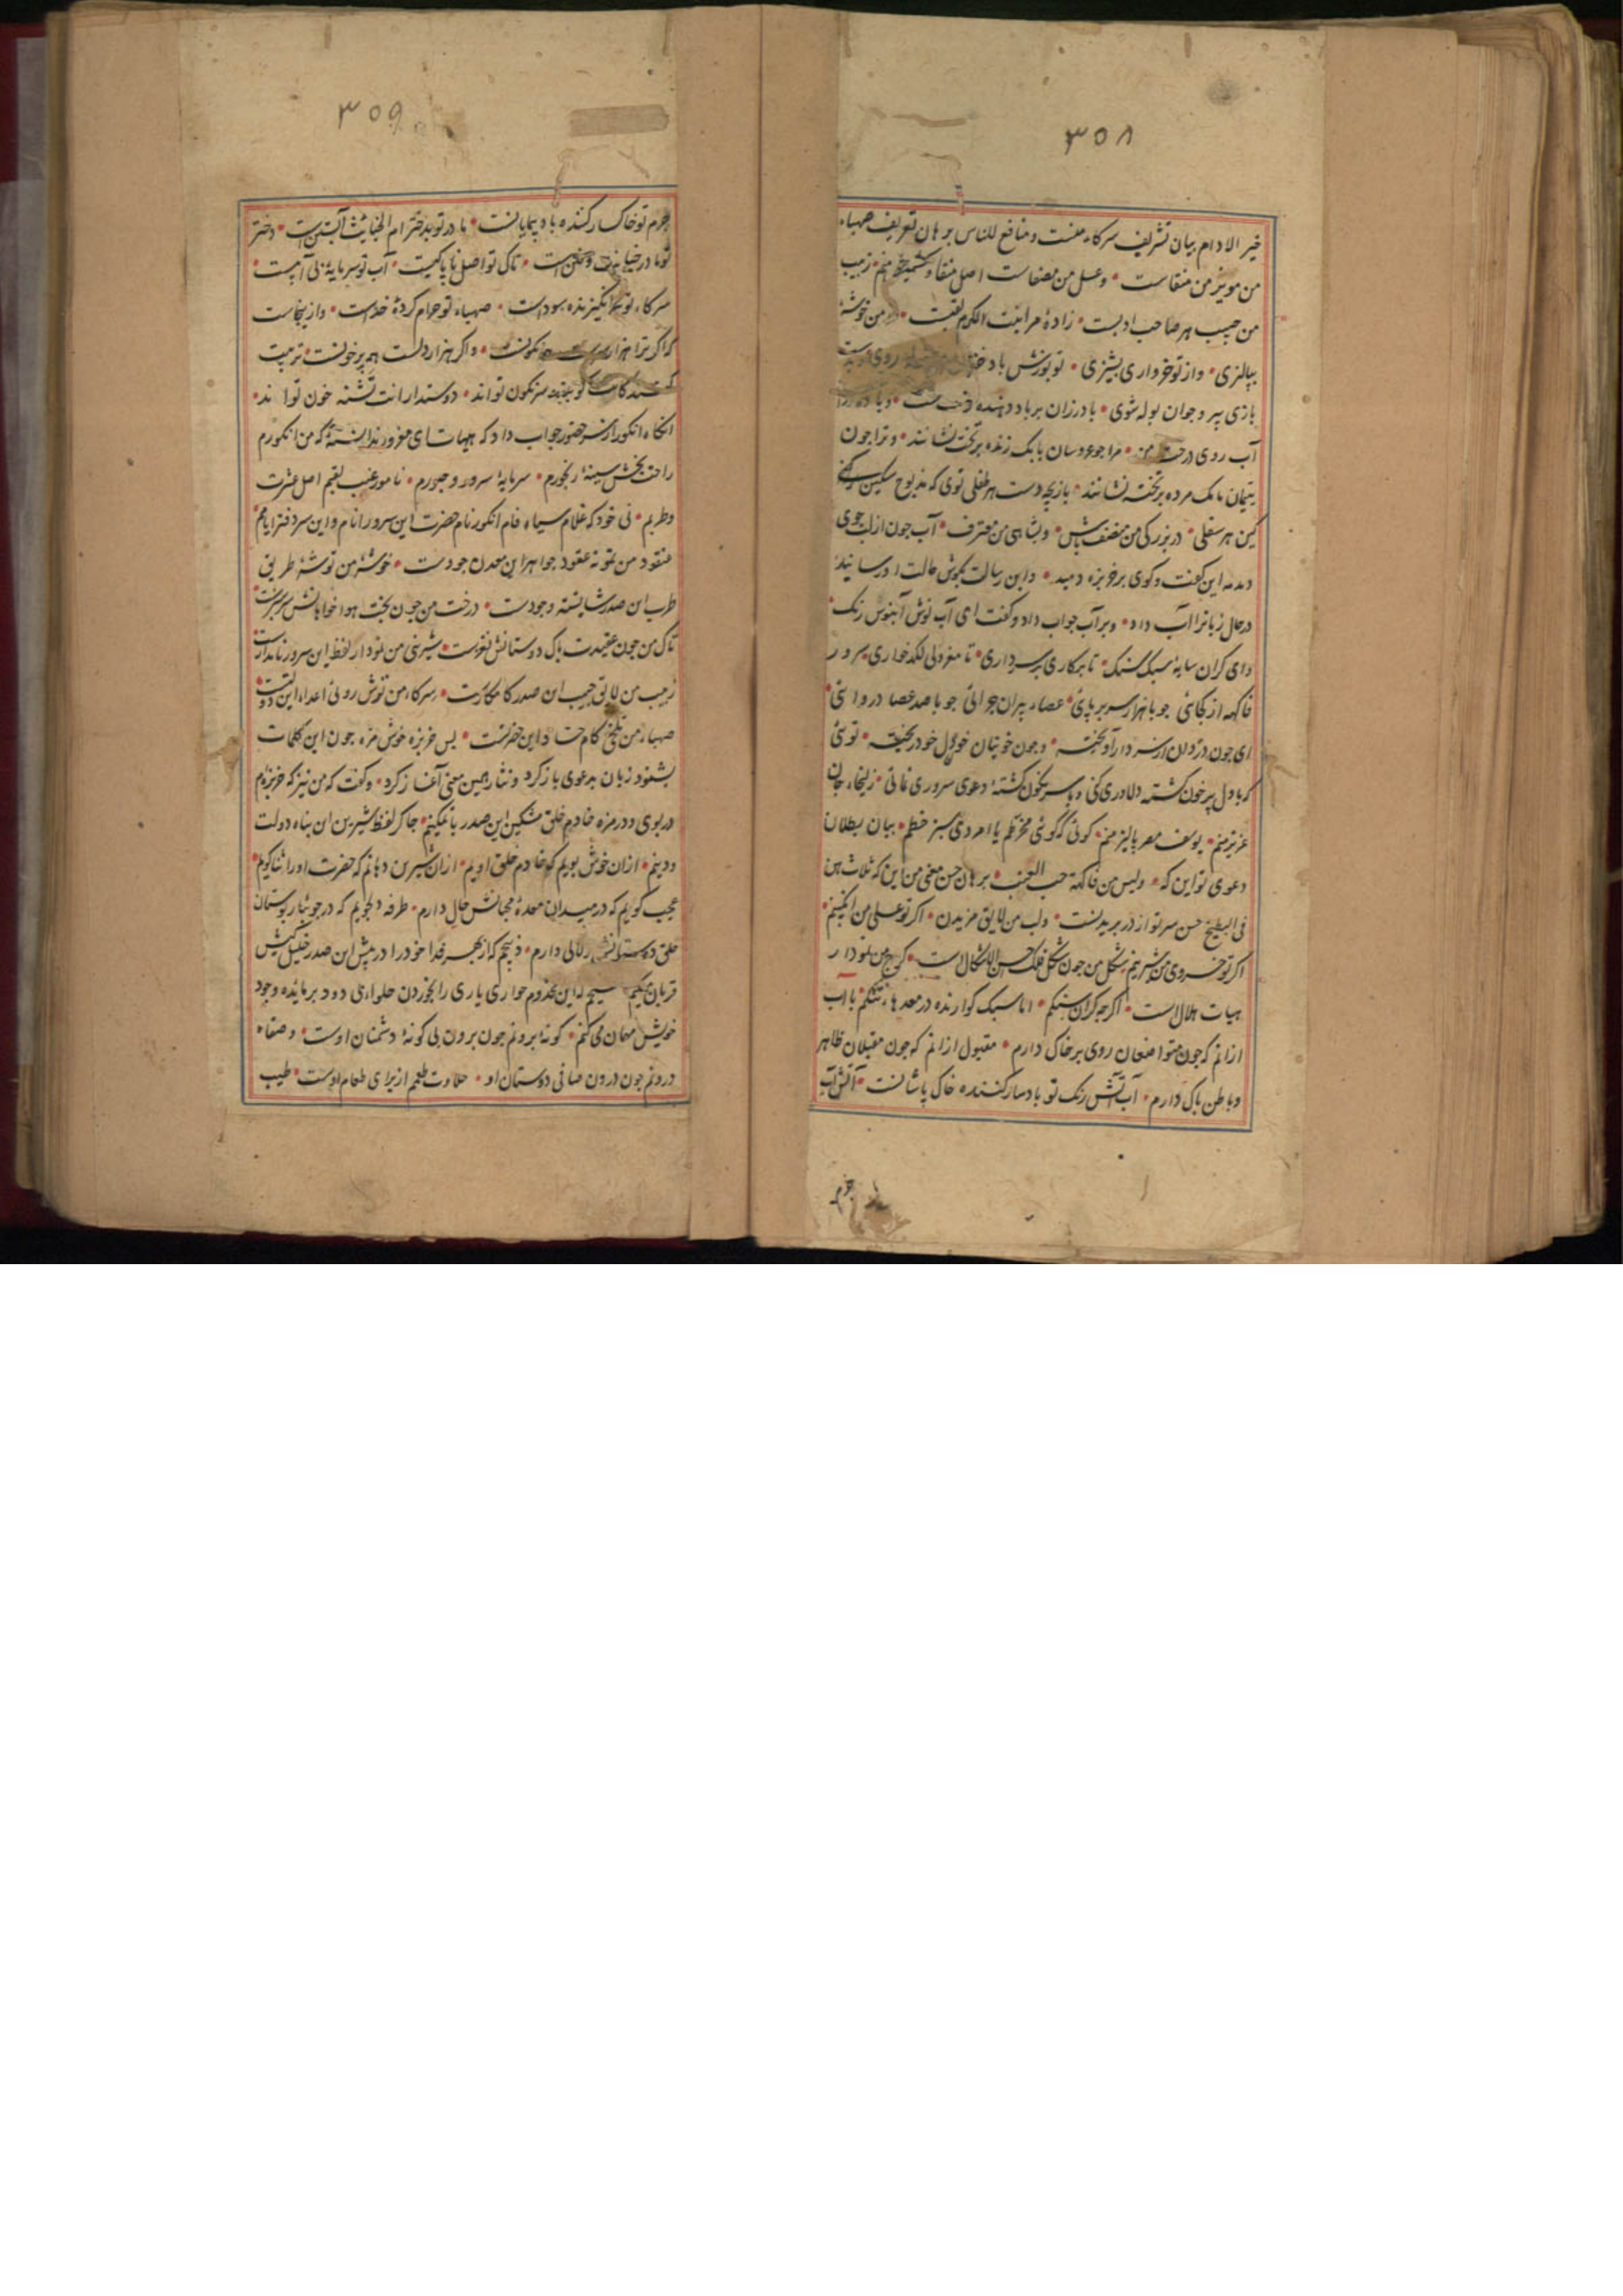 ۳۵۸
خیر الادام بیان تشریف سرکاء منست ومنافع للناس برهان تعریف صهباء
من مویز من منقاست • وعسل من مصفاست اصل منقا وسرچشمه منم • زبیب
من حبیب هر صاحب ادبست • زادهٔ مرا بنت الکرم لقبست • من خوشهٔ
بپالیزی • واز تو خرواری بپشیزی • تو بوزش باد
بازی پیر وجوان بوله شوی • بادرزان برباد دهنده
آب روی درخت من • مرا جو عروسان بابک زنده بر تخت نشانند • وترا جون
یتیمان مامک مرده بر تخته نشانند • بازیچه دست هر طفلی توی که مذبوح سکین
کین هر سفلی • در بزرکی من منصف باش • وبشاهی من معترف • آب جون از لب جوی
دمدمه این کفت وکوی بر خربزه دمید • واین رسالت بکوش حالت او رسانید
درحال زبانرا آب داد • وبر آب جواب داد وکفت ای آب نوش آبنوس رنک •
وای کران سایهٔ سبک سنک • نابکاری بسرداری • نامعزولی لکدخواری • سرور
فاکهه از کجائی جو با هزار سر بر پائی • عصاء پیران جرائی جو با صد عصا در وا ئی
ای جون دزدان از سر دار آویخته • وجون خونیان خون دل خود ریخته • توئی
که با دل پر خون کشته دلاوری کنی وبا سر نکون کشتهٔ دعوی سروری نمائی • زلیخاء جان
عزیز منم • یوسف مصر پالیز منم • کوئی که کوئی مخروطم یا امردی سبز خطم • بیان بطلان
دعوی تو این که • ولیس من فاکهة حب العنب • برهان حسن معنی من این که ثلاث هن
فی البطیخ حسن سر تو از در بریدنست • ولب من لایق مزیدن • اکر تو عسلی من انکبینم •
اکر تو خسروی من شیرینم شکل من جون شکل فلک احسن الاشکال است • کرج من نمودار
هیات هلال است • اکرجه کران سنکم • اما سبک کوارنده در معدها تنکم • با آب
ازانم که جون متواضعان روی بر خاک دارم • مقبول ازانم که جون مقبلان ظاهر
وباطن پاک دارم • آب آتش رنک تو باد سار کننده خاک پاشانست • آتش آب
جرم
۳۵۹
جرم تو خاک سار کننده باد پیمایانست • مادر تو بدختر ام الخبایث آبستن است • دختر
تو مادر خیانت ومحن است • تاک تو اصل ناپاکیست • آب تو سرمایهٔ بی آبیست •
سرکاء تو انکیزنده سوداست • صهباء تو حرام کردهٔ خداست • واز ینجاست
که اکر ترا هزار سرست همه نکونست • واکر هزار دلست همه پر خونست • تربیت
سرنکون تو اند • دوستدارانت تشنه خون تو اند •
آنکاه انکور از سر حضور جواب داد که هیهات ای مغرور ندانستهٔ که من انکورم
راحت بخش سینهٔ رنجورم • سرمایهٔ سرور وحبورم • نامور عنب لقبم اصل عشرت
وطربم • نی خود که غلام سیاه فام انکور نام حضرت این سرور انام واین سردفتر ایامم
عنقود من نمونه عقود جواهر این معدن جودست • خوشهٔ من توشهٔ طریق
طرب ان صدر شایسته وجودست • درخت من جون بخت هوا خواهانش سرسبزست
تاک من جون عقیدت پاک دوستانش نغزست • شیرینی من نمودار لفظ این سرور نامدارست
زبیب من لایق جیب ان صدر کامکارست • سرکاء من ترش روئی اعداء این دولتست
صهباء من تلخی کام حساد این حضرتست • پس خربزه خوش مزه جون این کلمات
بشنود زبان بدعوی باز کرد ونثار همین معنی آغاز کرد • وکفت که من نیز که خربزه ام
در بوی ودر مزه خادم خلق مشکین این صدر با تمکینم • جاکر لفظ شیرین ان پناه دولت
ودینم • ازان خوش بویم که خادم خلق اویم • ازان شیرین دهانم که حضرت او را ثناکویم
عجب کویم که در میدان معدهٔ محبانش حال دارم • طرفه دلجویم که در جویبار بوستان
حلق دوستانش زلالی دارم • ذبیحم که از بهر فدا خود را در پیش این صدر خلیل کیش
قربان میکنم مسیحم که این مخدوم حواری یاری را بخوردن حلواءی دود بر مایدهٔ وجود
خویش مهمان می کنم • کونهٔ برونم جون برون بی کونهٔ دشمنان اوست • وصفاء
درونم جون درون صافی دوستان او • حلاوت طعمم از برای طعام اوست • طیب